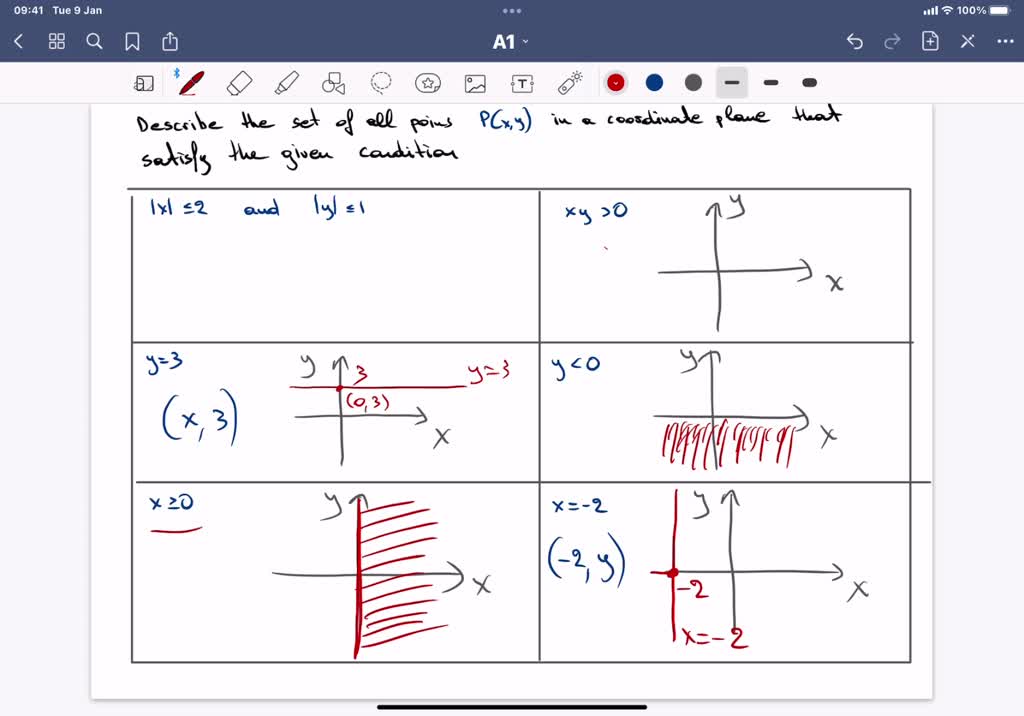 09:41 Tue 9 Jan
100%
A1
T
Describe the set of all poins P(x,y) in a coordinate plane that
satisfy the given condition
|x| ≤2 and |y| ≤1
xy >0
y
x
y=3
(x, 3)
y
3
y=3
(0,3)
x
y<0
y
x
x ≥0
y
x
x=-2
(-2, y)
y
-2
x
x=-2